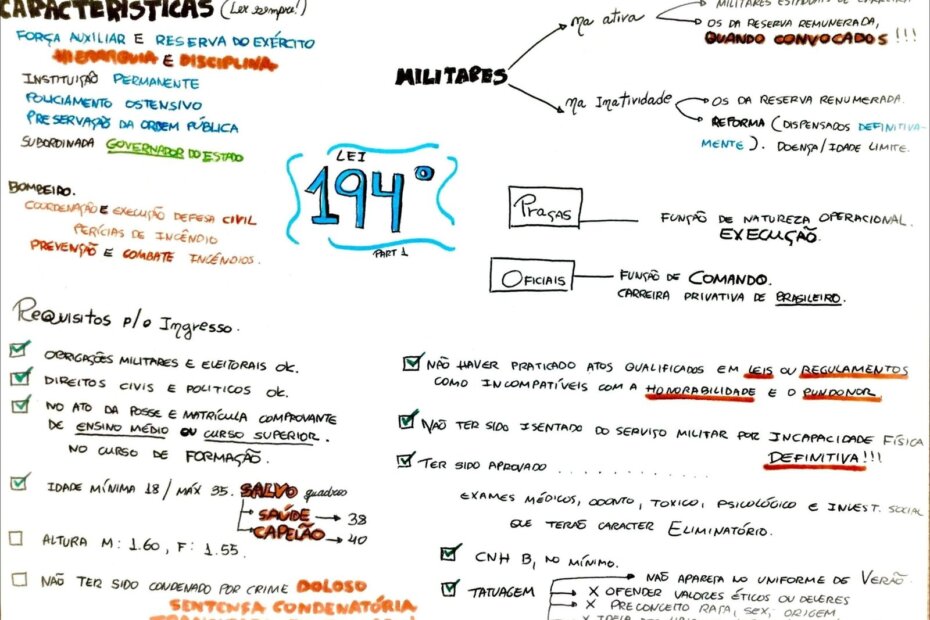 CARACTERÍSTICAS (Ler sempre!)
FORÇA AUXILIAR E RESERVA DO EXÉRCITO
HIERARQUIA E DISCIPLINA
INSTITUIÇÃO PERMANENTE
POLICIAMENTO OSTENSIVO
PRESERVAÇÃO DA ORDEM PÚBLICA
SUBORDINADA GOVERNADOR DO ESTADO
BOMBEIRO.
COORDENAÇÃO E EXECUÇÃO DEFESA CIVIL
PERÍCIAS DE INCÊNDIO
PREVENÇÃO E COMBATE INCÊNDIOS.
LEI
194º
PART 1
MILITARES
na ativa
MILITARES ESTADUAIS DE CARREIRA
OS DA RESERVA REMUNERADA,
QUANDO CONVOCADOS!!!
na Inatividade
OS DA RESERVA RENUMERADA.
REFORMA (DISPENSADOS DEFINITIVA-
MENTE). DOENÇA/IDADE LIMITE.
Praças
FUNÇÃO DE NATUREZA OPERACIONAL.
EXECUÇÃO.
OFICIAIS
FUNÇÃO DE COMANDO.
CARREIRA PRIVATIVA DE BRASILEIRO.
Requisitos p/o Ingresso.
OBRIGAÇÕES MILITARES E ELEITORAIS OK.
DIREITOS CIVIS E POLITICOS OK.
NO ATO DA POSSE E MATRÍCULA COMPROVANTE
DE ENSINO MÉDIO OU CURSO SUPERIOR.
NO CURSO DE FORMAÇÃO.
IDADE MÍNIMA 18/MÁX 35. SALVO quadros
SAÚDE 38
CAPELÃO 40
ALTURA M: 1.60, F: 1.55.
NÃO TER SIDO CONDENADO POR CRIME DOLOSO
SENTENSA CONDENATÓRIA
NÃO HAVER PRATICADO ATOS QUALIFICADOS EM LEIS OU REGULAMENTOS
COMO INCOMPATÍVEIS COM A HONORABILIDADE E O PUNDONOR
NÃO TER SIDO ISENTADO DO SERVIÇO MILITAR POR INCAPACIDADE FÍSICA
DEFINITIVA!!!
TER SIDO APROVADO . . . . . . . . . . .
EXAMES MÉDICOS, ODONTO, TOXICO, PSICOLÓGICO E INVEST. SOCIAL
QUE TERÃO CARACTER ELIMINATÓRIO.
CNH B, NO MÍNIMO.
TATUAGEM
NÃO APAREÇA NO UNIFORME DE VERÃO.
X OFENDER VALORES ÉTICOS OU DELERES
X PRECONCEITO RAÇA, SEX, ORIGEM